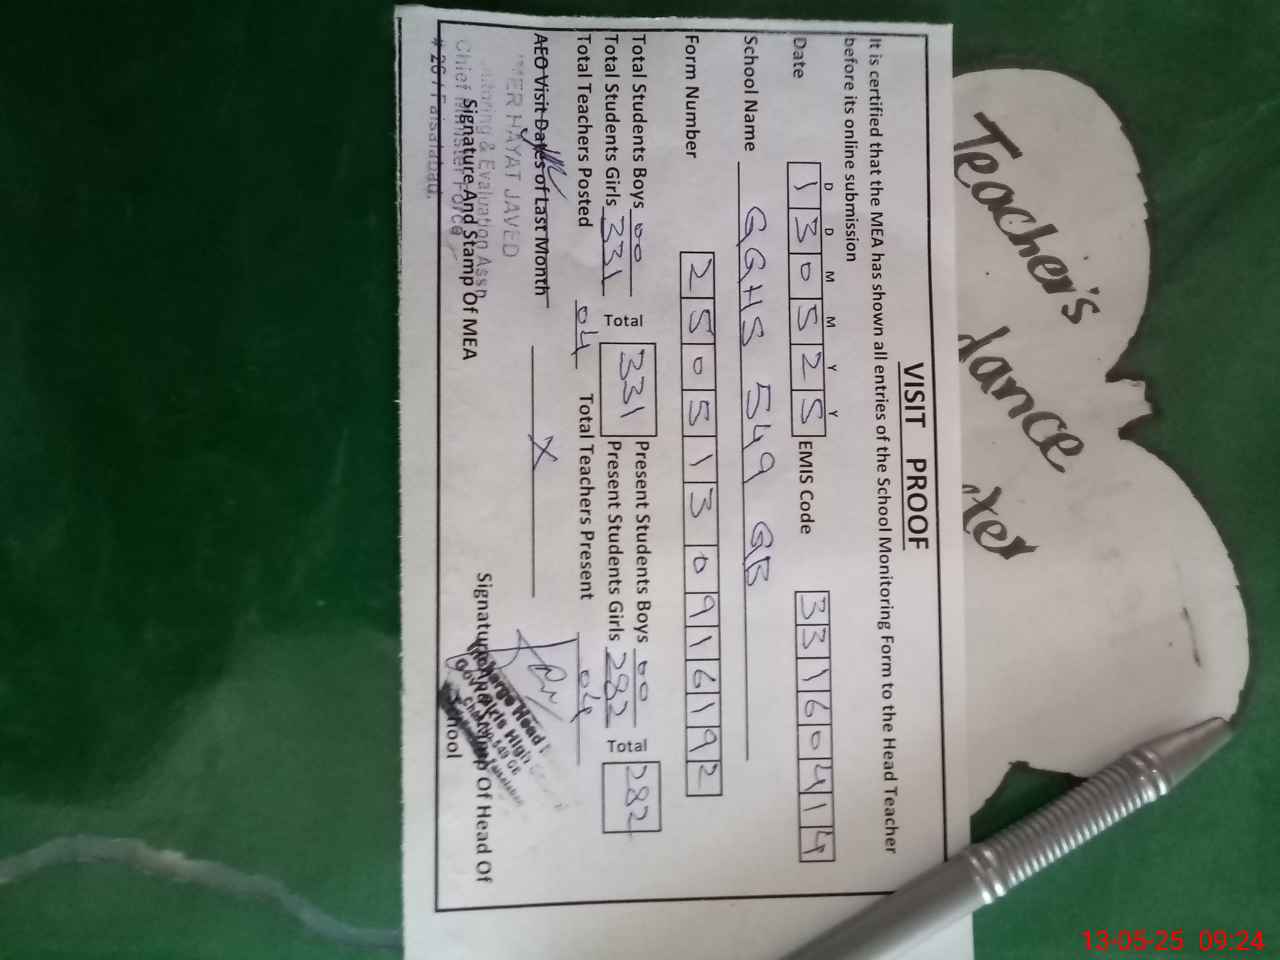 VISIT PROOF
It is certified that the MEA has shown all entries of the School Monitoring Form to the Head Teacher
before its online submission
D D M M Y Y
Date 1 3 0 5 2 5 EMIS Code 3 3 1 6 0 4 1 4
School Name GGHS 549 GB
Form Number 2 5 0 5 1 3 0 9 1 6 1 9 2
Total Students Boys 00 Total 331 Present Students Boys 00 Total 282
Total Students Girls 331 Present Students Girls 282
Total Teachers Posted 04 Total Teachers Present 04
AEO Visit Dates of Last Month X
HAYAT JAVED
& Evaluation Assn
Chief Minister Force
# 26 / Faisalabad.
Signature And Stamp Of MEA
Head
Govt Girls High
549 GB
Signature And Stamp Of Head Of
School
Teacher's
13-05-25 09:24